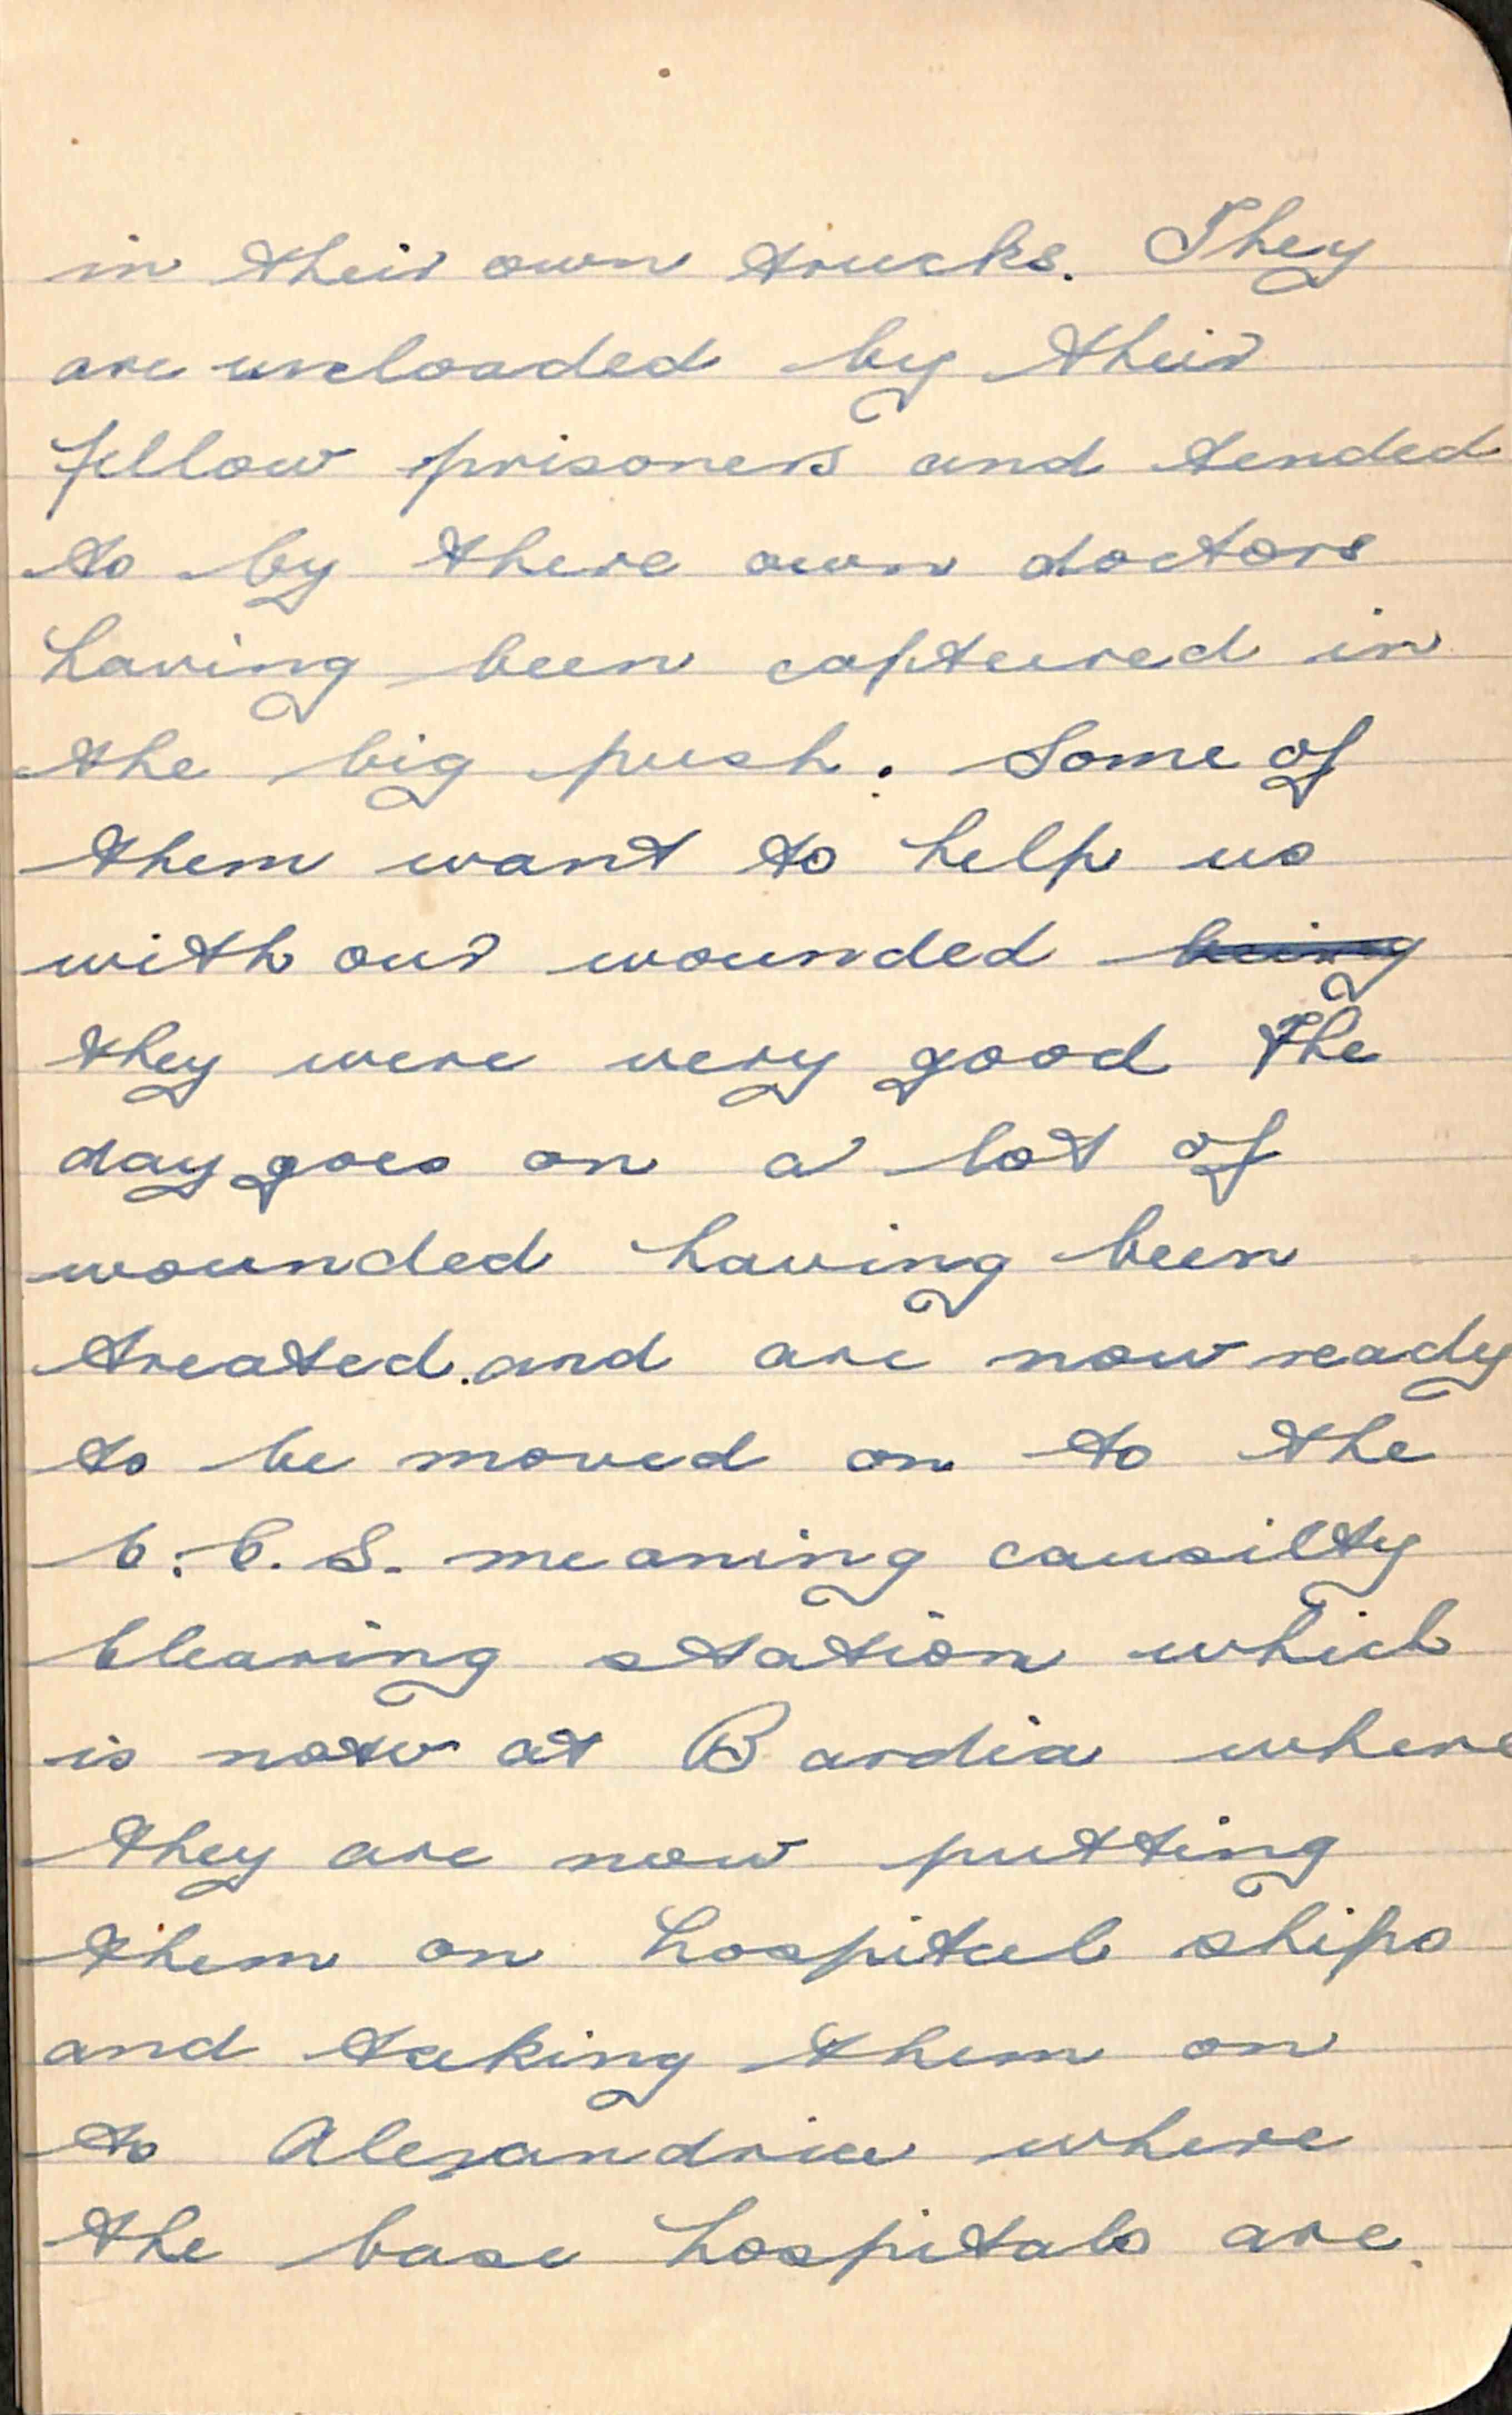 in their own trucks. They
are unloaded by their
fellow prisoners and tended
to by there own doctors
having been captured in
the big push. Some of
them want to help us
with our wounded being
they were very good The
day goes on a lot of
wounded having been
treated. and are now ready
to be moved on to the
C.C.S. meaning causilty
Clearing station which
is now at Bardia where
they are now putting
them on hospital ships
and taking them on
to Alexandria where
the base hospitals are.